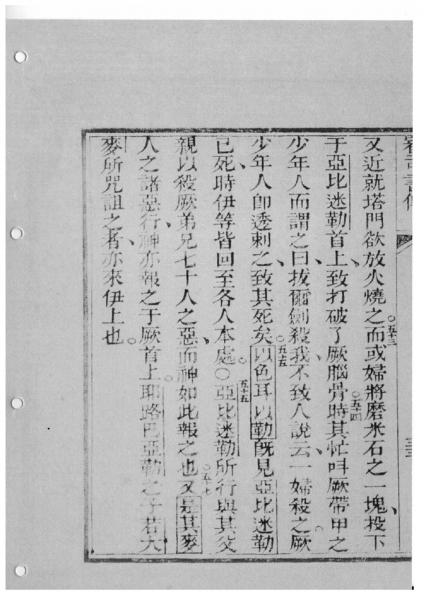 審司書傳
又近就塔門欲放火燒之○五十三而或婦將磨米石之一塊投下
于亞比迷勒首上致打破了厥腦骨○五十四時其忙呌厥帶甲之
少年人而謂之曰拔爾劍殺我不致人說云一婦殺之厥
少年人卽透刺之致其死矣○五十五以色耳以勒旣見亞比迷勒
已死時伊等皆回至各人本處○○五十六亞比迷勒所行與其父
親以殺厥弟兄七十人之惡而神如此報之也○五十七又是其麥
人之諸惡行神亦報之于厥首上耶路巴亞勒之子若大
麥所咒詛之者亦來伊上也